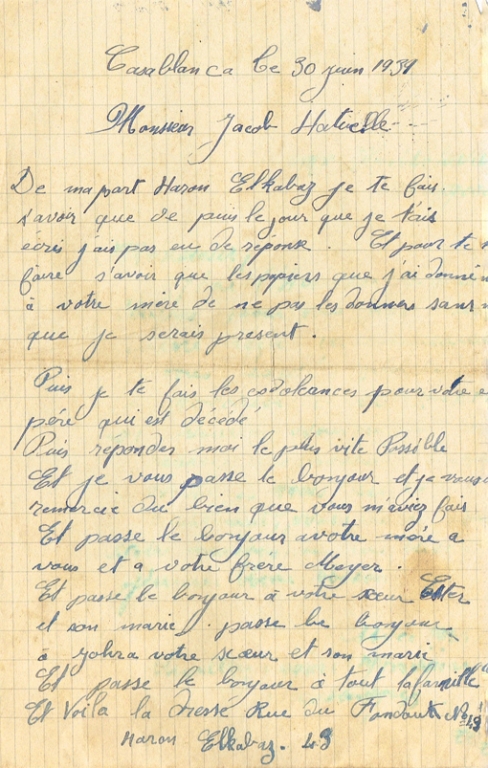 Casablanca le 30 juin 1931
Monsieur Jacob Hatuelle
De ma part Haron Elkabaz je te fais
savoir que de puis le jour que je tais
ecris j'ais pas eu de réponse. Et pour te
faire s'avoir que les papiers que j'ai donné
à votre mère de ne pas les donners sans
que je serais present.
Puis je te fais les codoleances pour votre
père qui est décédé
Puis répondes moi le plus vite Possible
Et je vous passe le bonjour et je vous
remercie du bien que vous m'aviez fais
Et passe le bonjour a votre mère a
vous et a votre frère Meyer.
Et passe le bonjour à votre sœur Ester
et son marie. passe le bonjour
à Zohra votre sœur et son marii
Et passe le bonjour à tout la famille
Et Voila la dresse Rue du Fondouk No 49
Haron Elkabaz. 49